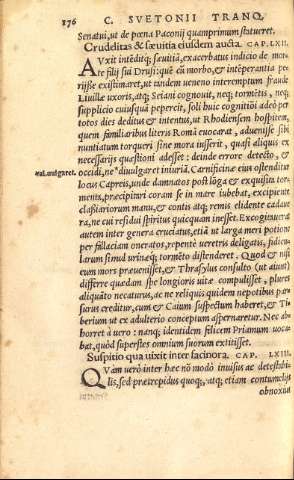 176 C. SVETONII TRANQ.
Senatui, ut de pœna Paconij quamprimum statueret.
Crudditas & sæuitia eiusdem aucta. CAP. LXII.
AVxit intẽditq; sæuitiã, exacerbatus indicio de mor-
te filij sui Drusi: quẽ cũ morbo, & intẽperantia pe-
rijsse existimaret, ut tandem ueneno interemptum fraude
Liuillæ uxoris, atq; Seiani cognouit, neq; tormẽtis, neq;
supplicio cuiusquã pepercit, soli huic cognitioi adeò per
totos dies deditus & intentus, ut Rhodiensem hospitem,
quem familiaribus literis Romã euocarat, aduenisse sibi
nuntiatum torqueri sine mora iusserit, quasi aliquis ex
necessarijs quæstioni adesset: deinde errore detecto, &
uel.uulgaret. occidi, ne * diuulgaret iniuriã. Carnificinæ eius ostenditur
locus Capreis, unde damnatos post lõga & exquisita tor-
menta, præcipitari coram se in mare iubebat, excipiente
classiariorum manu, & contis atq; remis elidente cadaue-
ra, ne cui residui spiritus quicquam inesset. Excogitauerat
autem inter genera cruciatus, etiã ut larga meri potione
per fallaciam oneratos, repentè ueretris deligatis, fidicu-
larum simul urinæq; tormẽto distenderet. Quod & nisi
eum mors præuenisset, & Thrasylus consulto (ut aiunt)
differre quædam spe longioris uitæ compulisset, plures
aliquãto necaturus, ac ne reliquis quidem nepotibus par-
surus creditur, cum & Caium suspectum haberet, & Ti-
berium ut ex adulterio conceptum aspernaretur. Nec ab-
horret à uero: nanq; identidem felicem Priamum uoca-
bat, quòd superstes omnium suorum extitisset.
Suspitio qua uixit inter facinora. CAP. LXIII.
QVàm uerò inter hæc nõ modò inuisus ac detestabi-
lis, sed prætrepidus quoq;, atq; etiam contumelijs
obnoxius